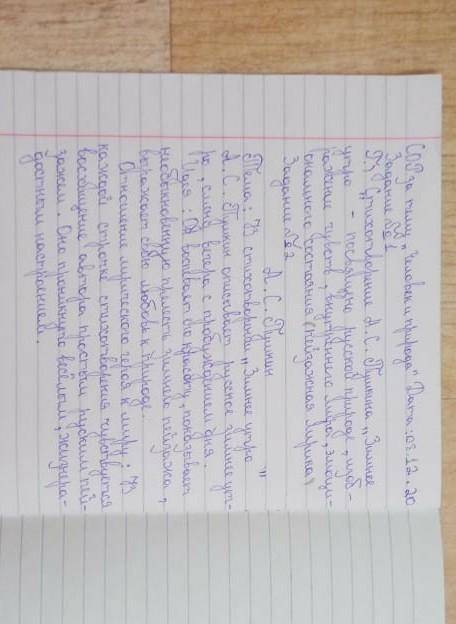 СОР за тему „Человек и природа" Дата .08.12.20
Задание №1
Стихотворение А.С. Пушкина „Зимнее
утро - посвящено русской природе, изоб-
ражение чувств, внутреннего мира, эмоци-
онального состояния (пейзажная лирика)
Задание №2
А.С. Пушкин
Тема: В стихотворении „Зимнее утро"
А.С. Пушкин описывает русское зимнее ут-
ро, смену вечера с пробуждением дня.
Идея: Он воспевает его красоту, показывает
необыкновенную прелесть зимнего пейзажа,
выражает свою любовь к природе.
Отношение лирического героя к миру: В
каждой строчке стихотворения чувствуется
восхищение автора простым русским пей-
зажем. Оно проникнуто весёлым, жизнера-
достным настроением.